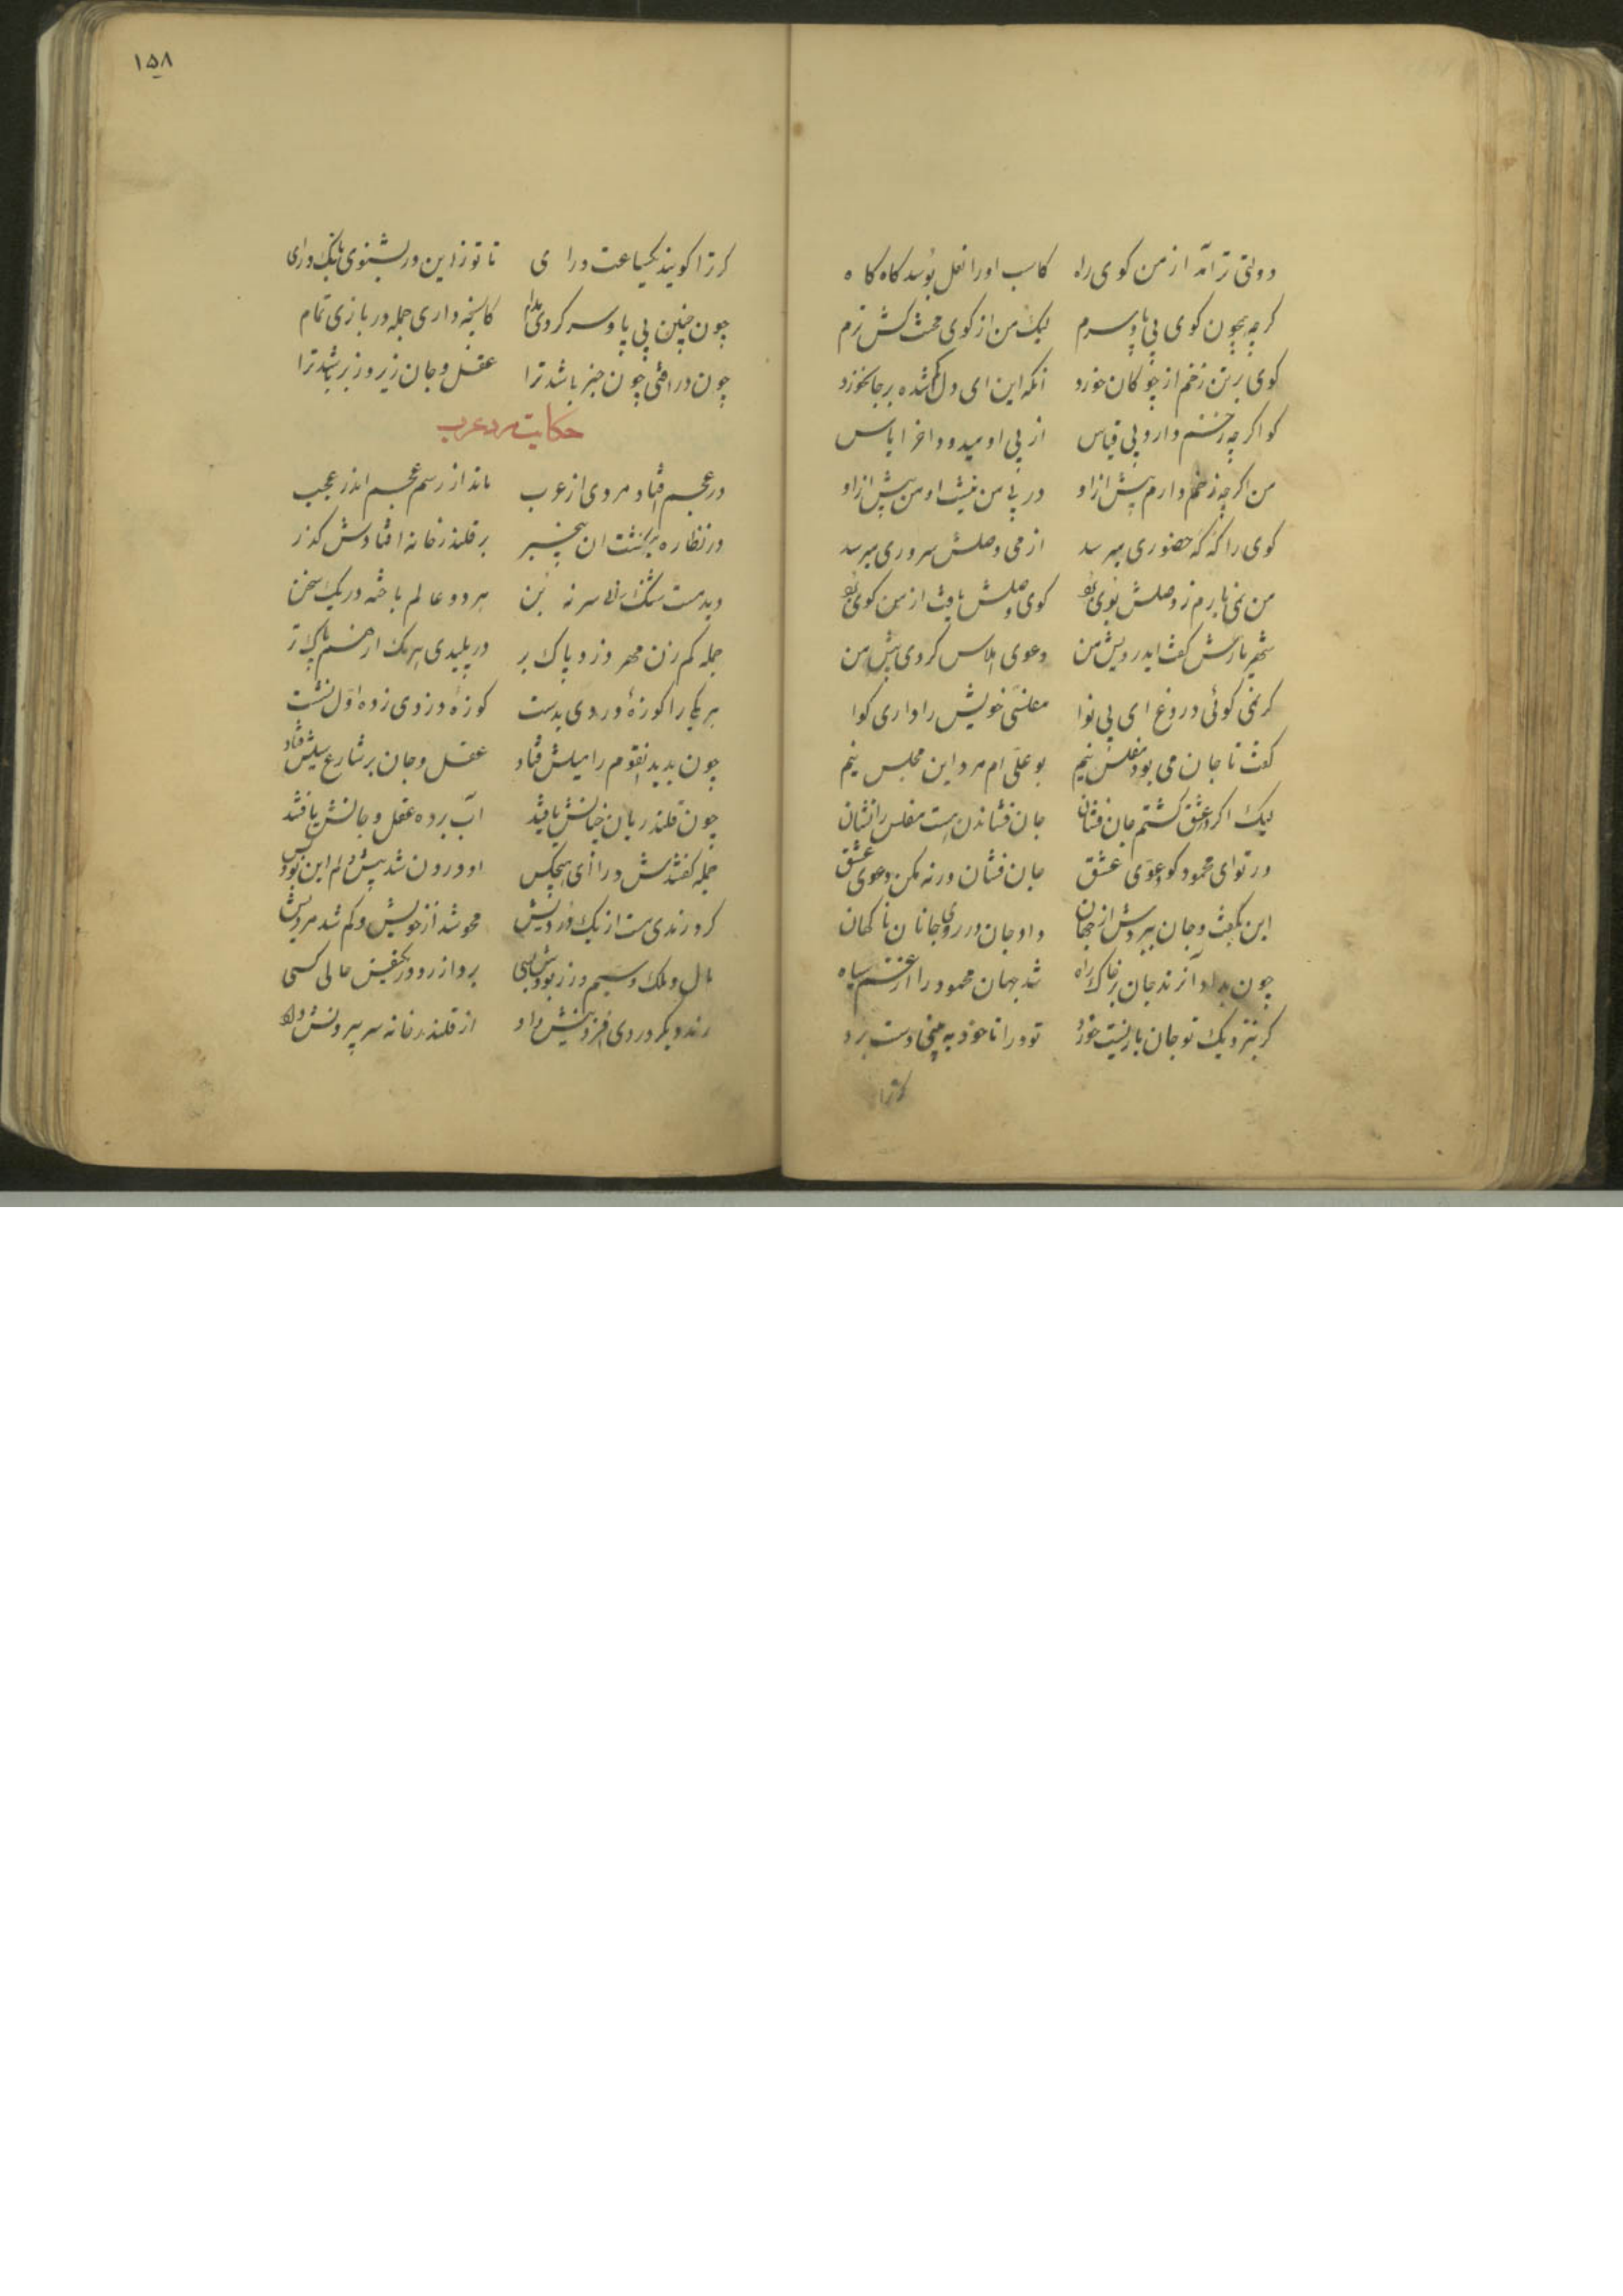 دولتی تر آمد از من کوی راه کاسب اورا نعل بوسد کاه کاه
کرچه همچون کوی بی پا و سرم لیک من از کوی محنت کش ترم
کوی بر تن زخم از چوکان خورد وانکه این ای دل شده بر جان خورد
کو اکرچه زخم دارد بی قیاس از پی او میدود اخر ایاس
من اکرچه زخم دارم پیش ازو در پی من نیست او من پیش ازو
کوی را که که حضوری میرسد از می وصلش سروری میرسد
من نمی یارم ز وصلش بوی برد کوی وصلش یافت از من کوی برد
شهریارش کفت ای درویش من دعوی افلاس کردی پیش من
کر نمی کوئی دروغ ای بی نوا مفلسی خویش را داری کوا
کفت تا جان می بود مفلس نیم بوعلی ام مرد این مجلس نیم
لیک اکر در عشق کشتم جان فشان جان فشاندن هست مفلس را نشان
در تو ای محمود کو دعوی عشق جان فشان ورنه مکن دعوی عشق
این بکفت و جان ببردش از جهان داد جان در روی جانان ناکهان
چون بداد آن رند جان بر خاک راه شد جهان محمود را از غم سیاه
کر بنزدیک تو جان بازیست خورد تو درا تا خود به بینی دست برد
کر ترا
۱۵۸
کر ترا کویند یکساعت درا ی تا تو زاین ره بشنوی بانک درای
چون چنین بی پا و سر کردی مدام کانچه داری جمله در بازی تمام
چون در افتی چون خبر باشد ترا عقل و جان زیر و زبر باشد ترا
حکایت مرد عرب
در عجم افتاد مردی از عرب ماند از رسم عجم اندر عجب
در نظاره میکذشت ان بیخبر بر قلندر خانه افتادش کذر
دید مست شنک را نه سر نه بن هر دو عالم باخته در یک سخن
جمله کم زن مهره دزد و پاک بر در پلیدی هر یک از هم پاک تر
هر یکی را کوزهٔ دردی بدست کوزه دردی زده اول نشست
چون بدید انقوم را میلش فتاد عقل و جان بر شارع سیلش فتاد
چون قلندریان چنانش یافتند آب برده عقل و جانش یافتند
جمله کفتندش درا ای هیچکس او درون شد بیش و کم این بود و بس
کرد رندی مست از یک دردیش محو شد از خویش و کم شد مردیش
مال و ملک و سیم و زر بودش بسی برد از رو در یکنفس حالی کسی
رند دیکر دردی افزونیش داد از قلندر خانه سر بیرونش داد